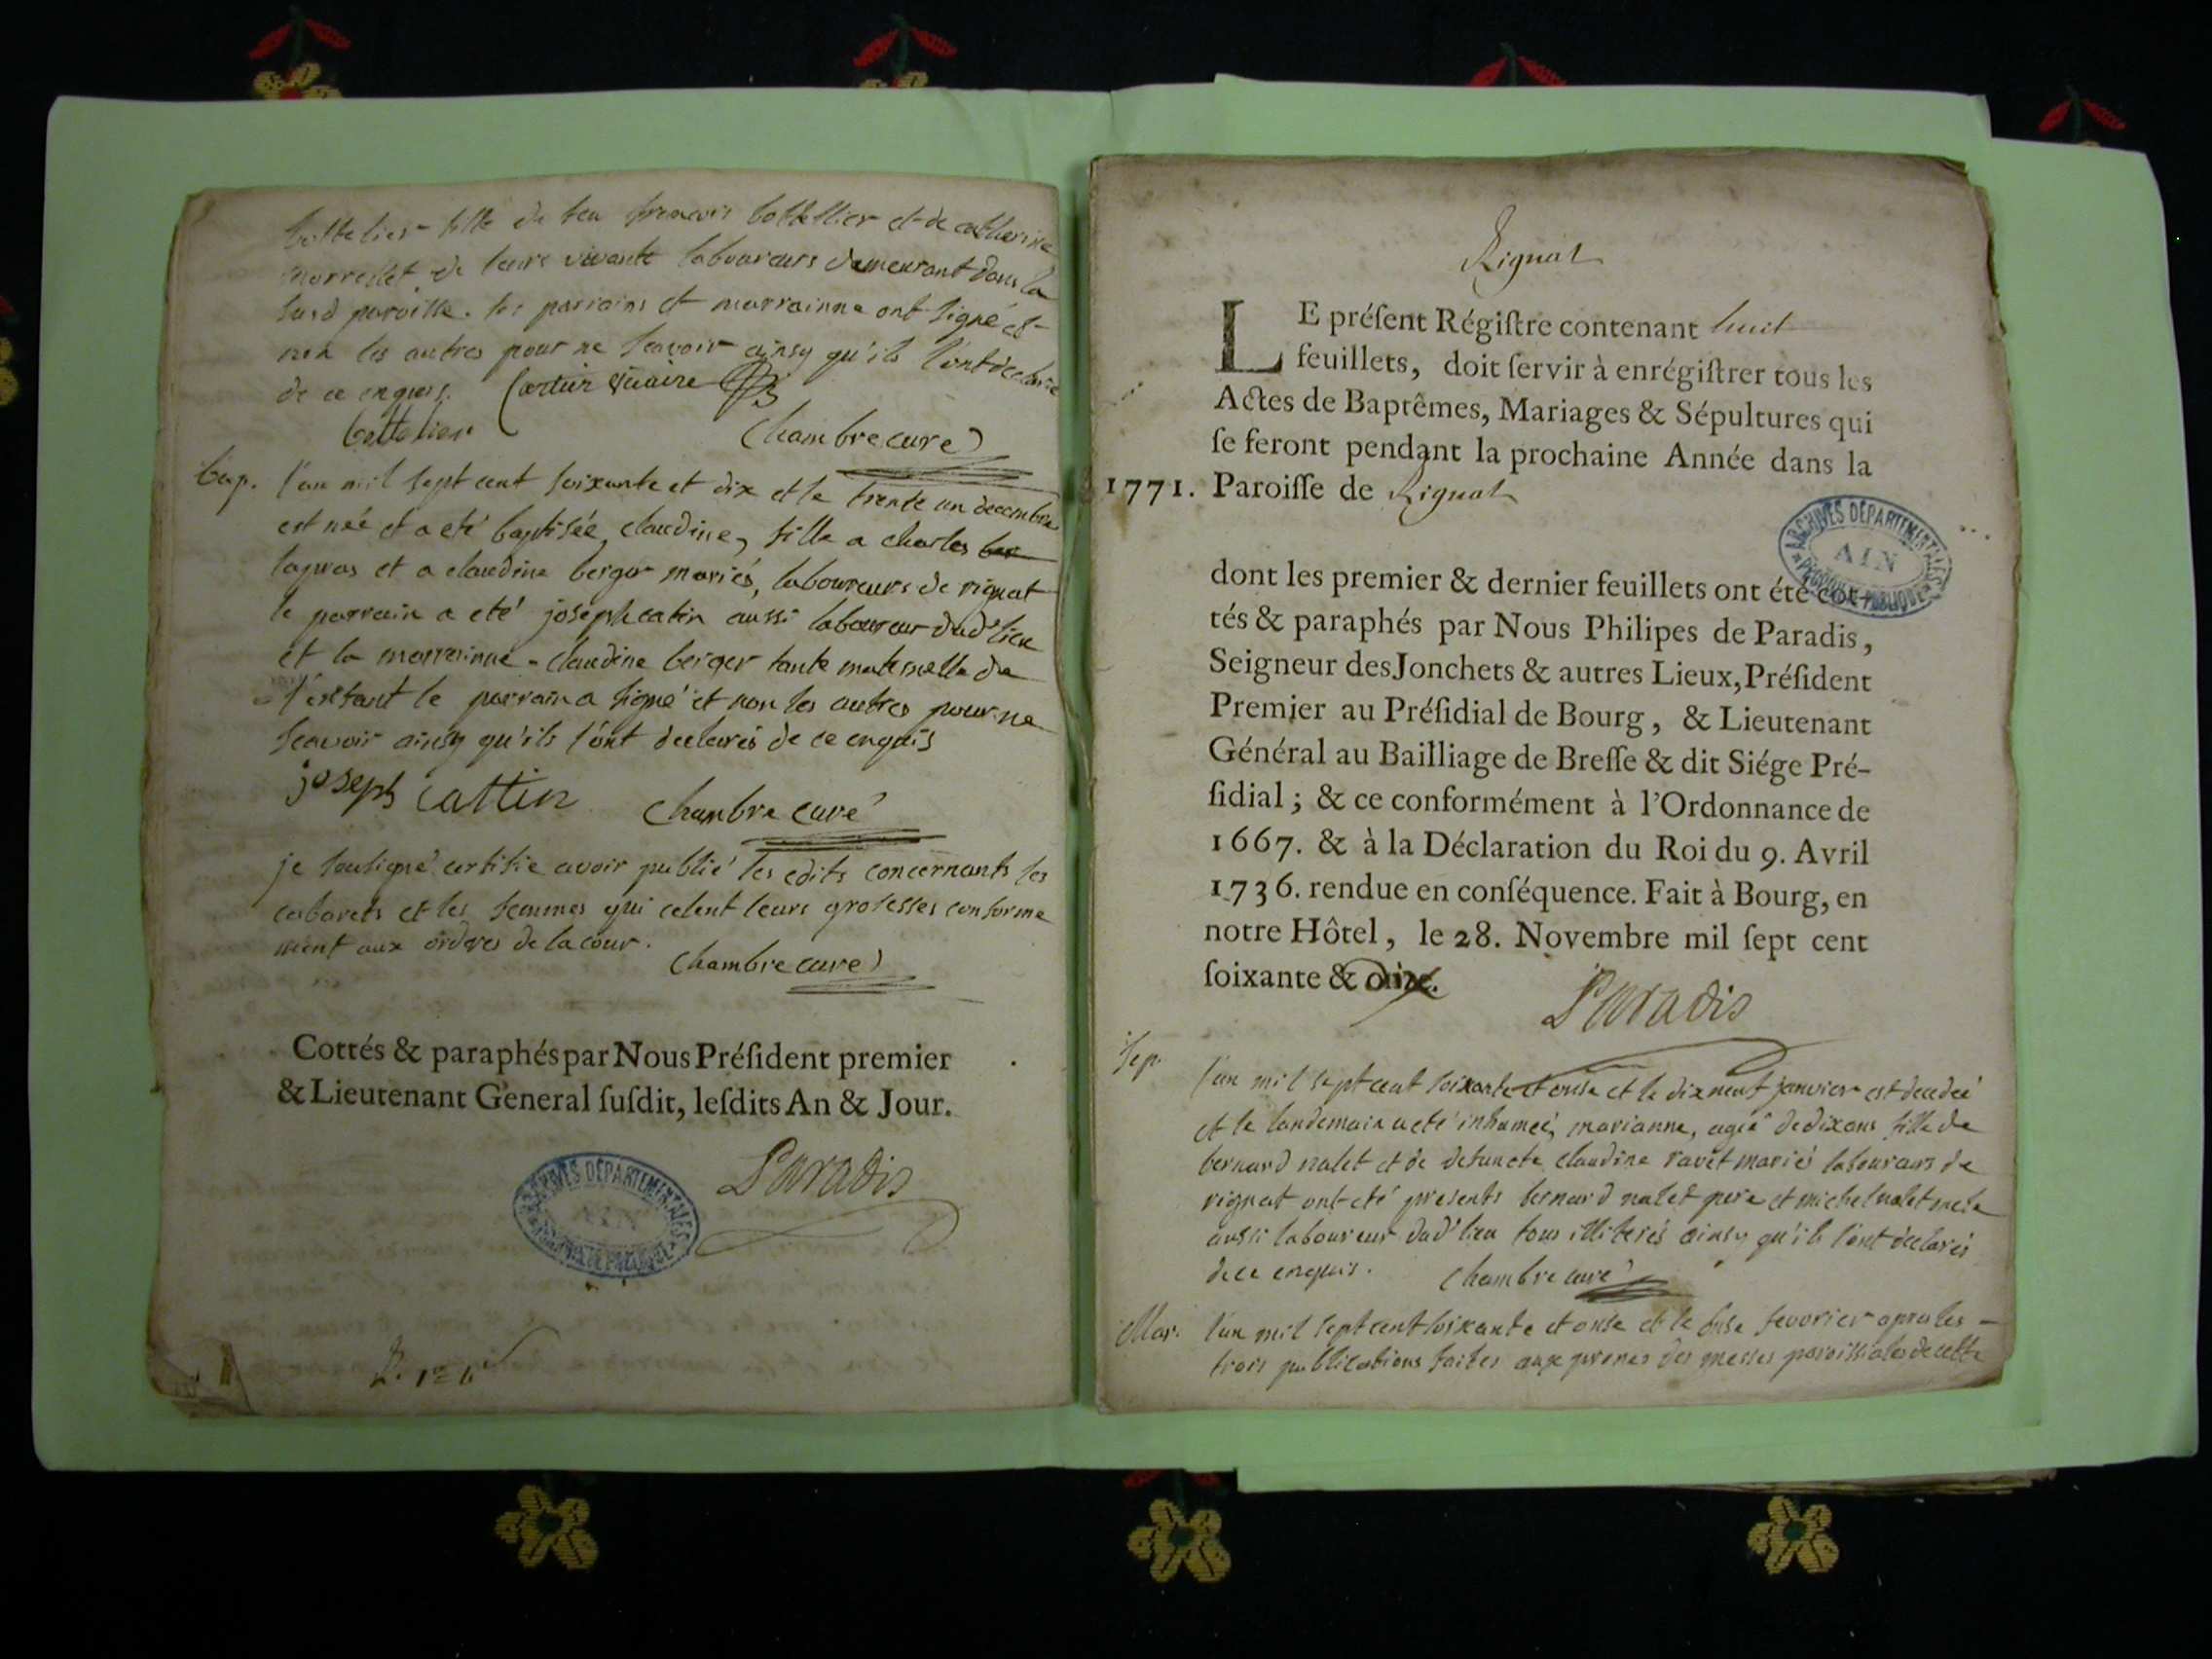 bottelier fille de feu francois bottellier et de catherine
morrellet de leurs vivants laboureurs demeurant dans la
susd paroisse. les parrains et marrainne ont signé et
non les autres pour ne scavoir ainsy qu'ils l'ont declaré
de ce enquis. Cartier vicaire
bottelier
Chambre curé
bap. l'an mil sept cent soixante et dix et le trente un decembre
est née et a eté baptisée, claudine, fille a charles
lapras et a claudine berger mariés, laboureurs de rignat
le parrain a eté joseph catin aussi laboureur dud' lieu
et la marrainne claudine berger tante maternelle de
l'enfant le parrain a signé et non les autres pour ne
scavoir ainsy qu'ils l'ont declarés de ce enquis
joseph cattin Chambre curé
je soussigné certifie avoir publié les edits concernants les
cabarets et les femmes qui celent leurs grosesses conforme
ment aux ordres de la cour.
Chambre curé
Cottés & paraphés par Nous Préſident premier
& Lieutenant General ſuſdit, leſdits An & Jour.
Paradis
ARCHIVES DÉPARTEMENTALES
AIN
Rignat
LE préſent Régiſtre contenant huit
feuillets, doit ſervir à enrégiſtrer tous les
Actes de Baptêmes, Mariages & Sépultures qui
ſe feront pendant la prochaine Année dans la
1771. Paroiſſe de Rignat
ARCHIVES DÉPARTEMENTALES
AIN
dont les premier & dernier feuillets ont été cot-
tés & paraphés par Nous Philipes de Paradis,
Seigneur des Jonchets & autres Lieux, Préſident
Premier au Préſidial de Bourg, & Lieutenant
Général au Bailliage de Breſſe & dit Siége Pré-
ſidial; & ce conformément à l'Ordonnance de
1667. & à la Déclaration du Roi du 9. Avril
1736. rendue en conſéquence. Fait à Bourg, en
notre Hôtel, le 28. Novembre mil ſept cent
ſoixante &
Paradis
Sep. l'an mil sept cent soixante et onse et le dix neuf janvier est decedeé
et le landemain a eté inhumeé, marianne, ageé de dix ans fille de
bernard nalet et de defuncte claudine ravet mariés laboureurs de
rignat ont eté presents bernard nalet pere et michel nalet
aussi laboureur dud' lieu tous illiterés ainsy qu'ils l'ont declarés
de ce enquis. Chambre curé
Mar. l'an mil sept cent soixante et onse et le onse fevorier apres les
trois publications faites aux prones des messes paroissiales de cette